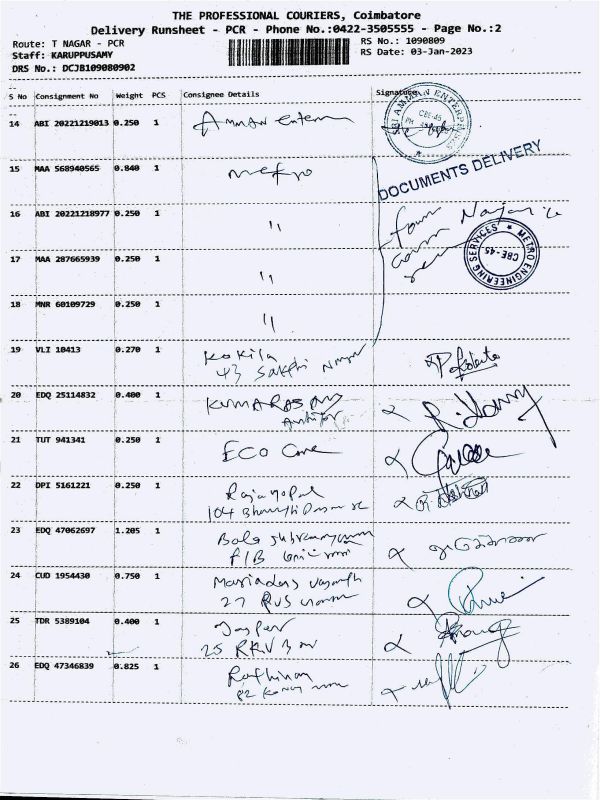 THE PROFESSIONAL COURIERS, Coimbatore
Delivery Runsheet - PCR - Phone No.:0422-3505555 - Page No.:2
Route: T NAGAR - PCR
RS No.: 1090809
Staff: KARUPPUSAMY
RS Date: 03-Jan-2023
DRS No.: DCJB109080902
S No Consignment No Weight PCS Consignee Details Signature
14 ABI 20221219013 0.250 1 Amman Enter
SRI AMMAN ENTERPRISES
CBE-45
PH
15 MAA 568940565 0.840 1 Metro
DOCUMENTS DELIVERY
16 ABI 20221218977 0.250 1 "
METRO ENGINEERING SERVICES
CBE-45
17 MAA 287665939 0.250 1 "
18 MNR 60109729 0.250 1 "
19 VLI 10413 0.270 1 Kokila
43 Sakthi Nagar
20 EDQ 25114832 0.400 1 KUMARASAMY
Auditor
21 TUT 941341 0.250 1 ECO Care
22 DPI 5161221 0.250 1 Rajagopal
104
23 EDQ 47062697 1.205 1 Bala Subramaniam
24 CUD 1954430 0.750 1 Mariadas
27
25 TDR 5389104 0.400 1 Jasper
25
26 EDQ 47346839 0.825 1 Rathinam